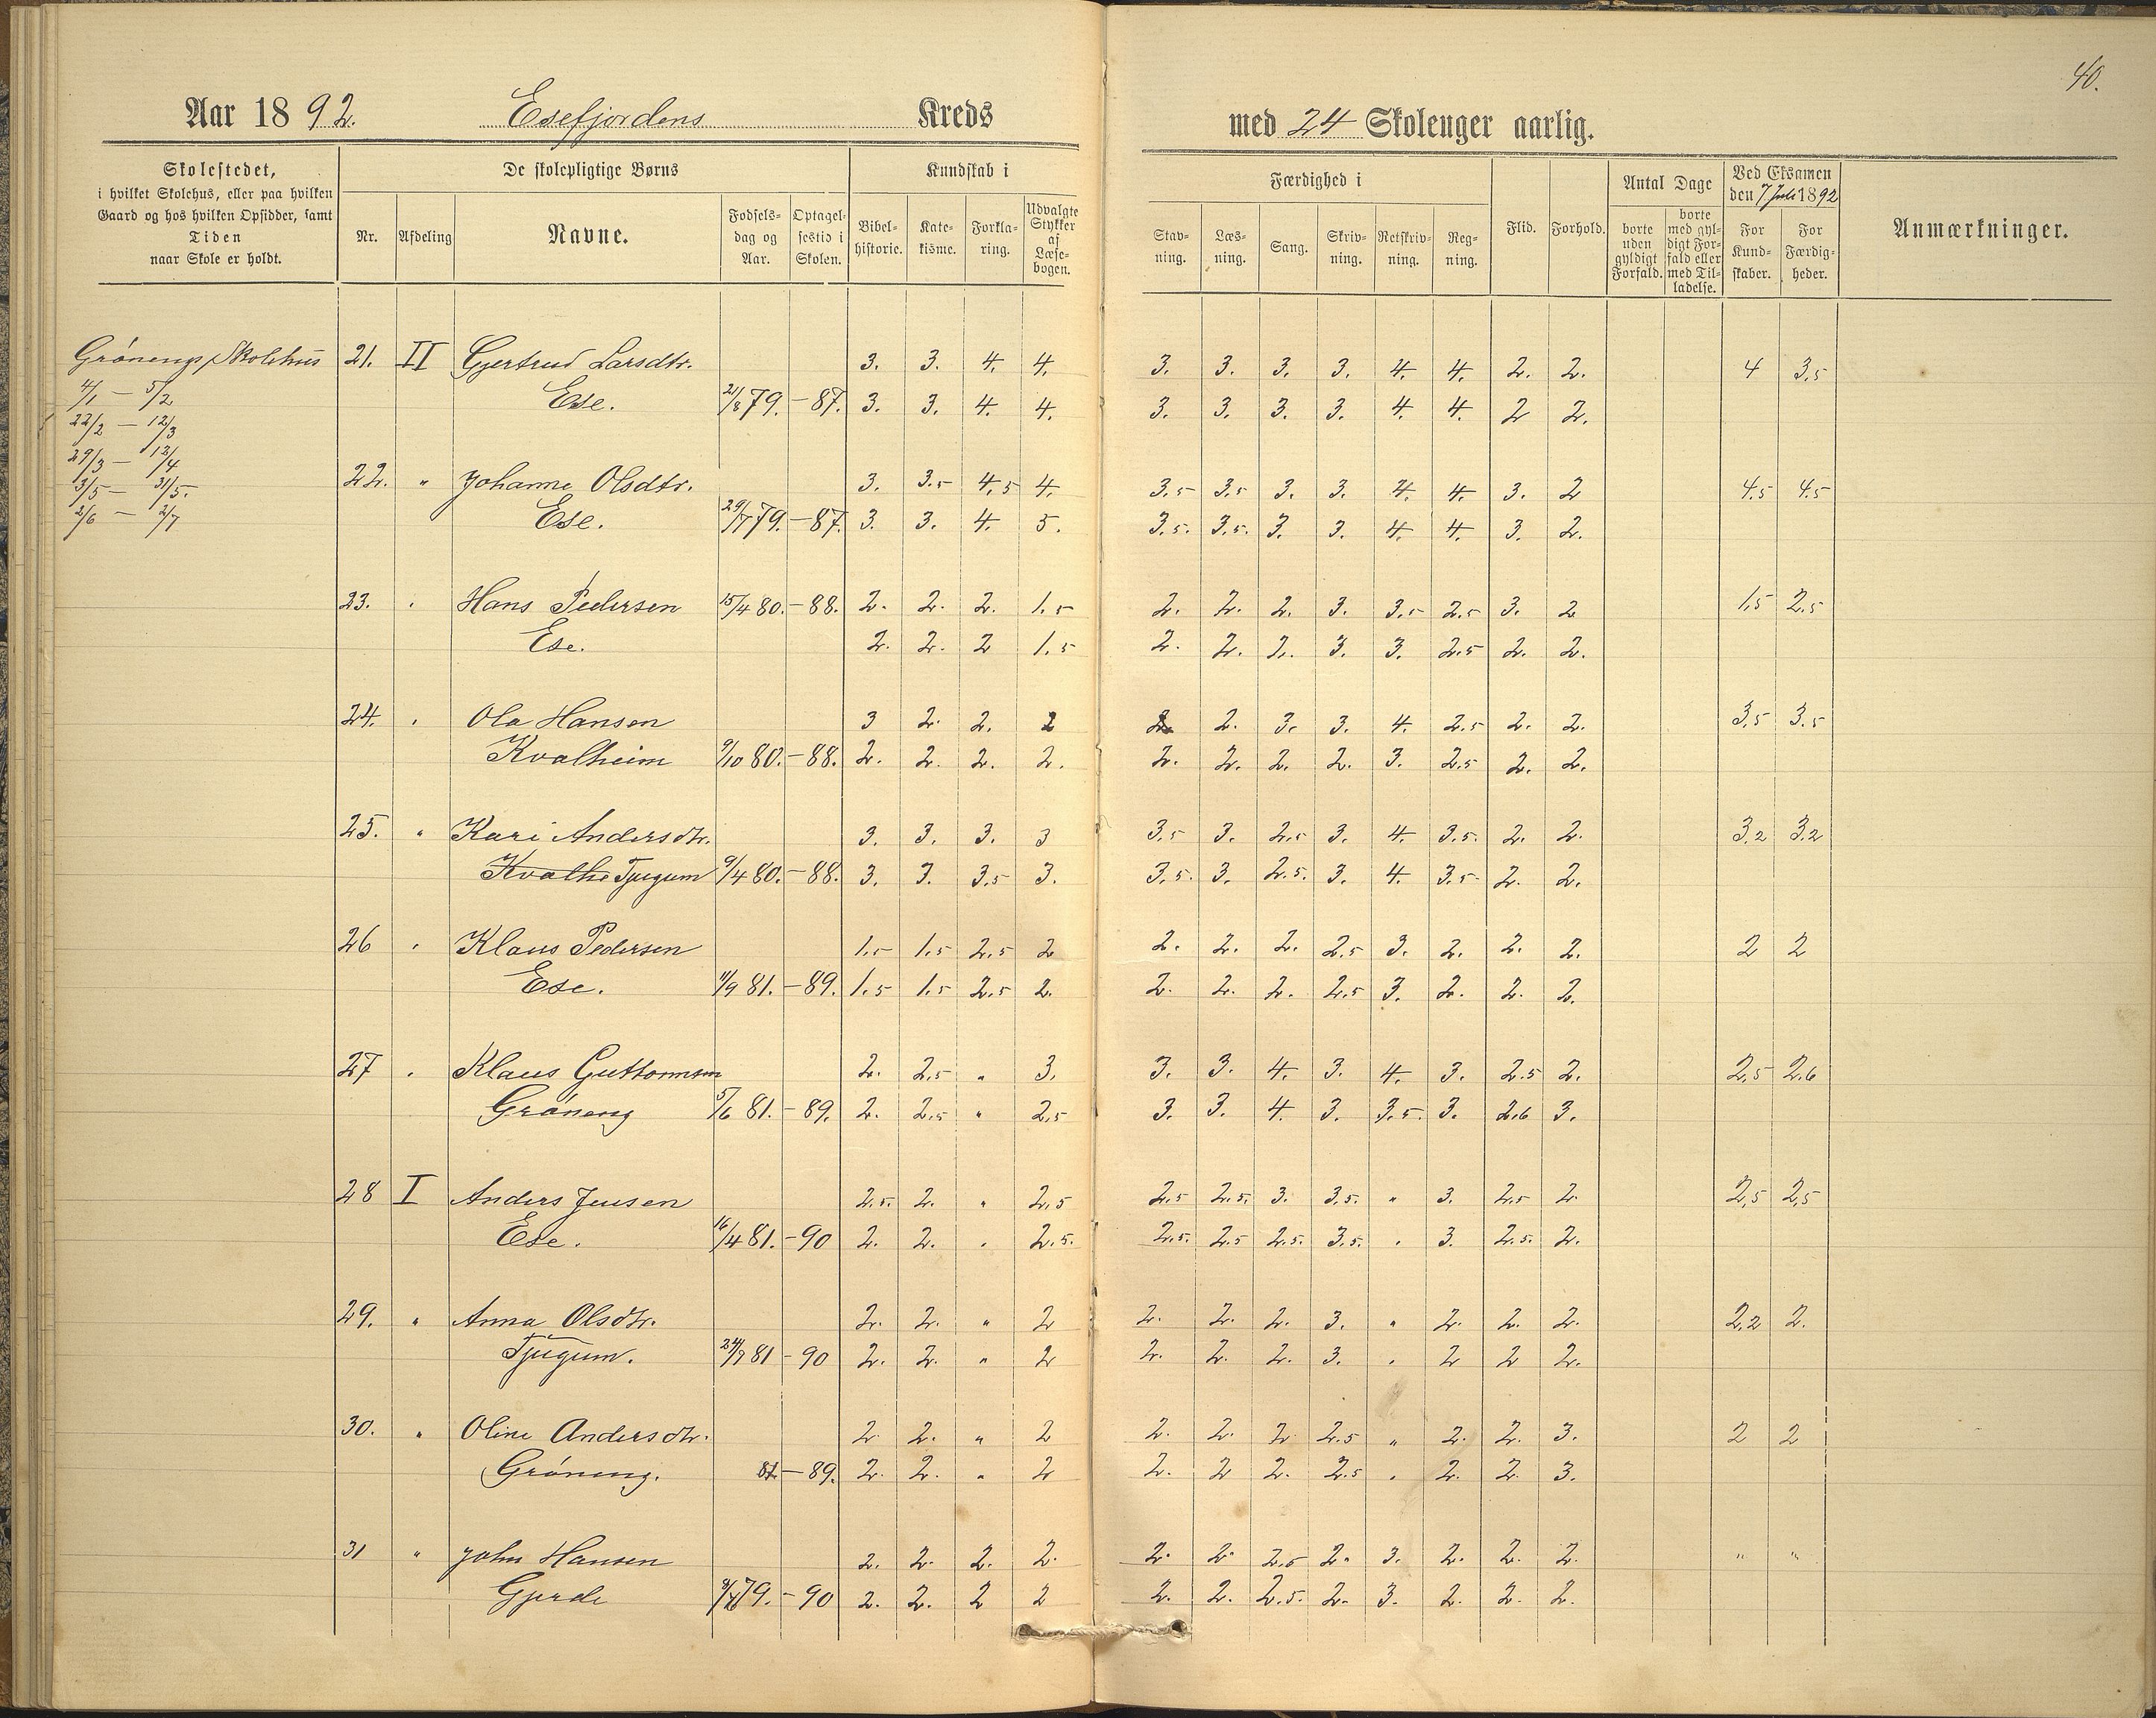 40.
Aar 1892. Esefjordens Kreds med 24 Skoleuger aarlig.
Skolestedet, i hvilket Skolehus, eller paa hvilken Gaard og hos hvilken Opsidder, samt Tiden naar Skole er holdt.
De skolepligtige Børns
Nr. Afdeling Navne. Fødselsdag og Aar. Optagelsestid i Skolen.
Kundskab i
Bibelhistorie. Katekisme. Forklaring. Udvalgte Stykker af Læsebogen.
Færdighed i
Stavning. Læsning. Sang. Skrivning. Retskrivning. Regning.
Flid. Forhold.
Antal Dage
borte uden gyldigt Forfald. borte med gyldigt Forfald eller med Tilladelse.
Ved Eksamen den 7 Juli 1892
For Kundskaber. For Færdigheder.
Anmærkninger.
Grónengs Skolehus
4/1 — 5/2
22/2 — 12/3
29/3 — 12/4
3/5 — 31/5.
2/6 — 2/7
21. II Gjertrud Larsdtr. 3. 3. 4. 4. 3. 3. 3. 3. 4. 4. 2. 2. 4 3.5
Ese. 21/8 79. – 87. 3. 3. 4. 4. 3. 3. 3. 3. 4. 4. 2 2.
22. " Johanne Olsdtr. 3. 3.5 4.5 4. 3.5 3.5 3. 3. 4. 4. 3. 2 4.5 4.5
Ese. 29/7 79. – 87. 3. 3. 4. 5. 3.5. 3.5. 3. 3. 4. 4. 3. 2.
23. " Hans Pedersen 15/4 80. – 88. 2. 2. 2. 1.5 2. 2. 2. 3. 3.5 2.5 3. 2 1.5 2.5
Ese. 2. 2. 2 1.5 2. 2. 2. 3. 3. 2.5 2. 2.
24. " Ola Hansen 3 2. 2. 2 2 2. 3. 3. 4. 2.5 2. 2. 3.5 3.5
Kvalheim 9/10 80. – 88. 2. 2. 2. 2. 2. 2. 2. 2. 3. 2.5 2. 2.
25. " Kari Andersdtr. 3. 3. 3. 3 3.5 3. 2.5 3. 4. 3.5. 2. 2. 3.2 3.2
Kvalhe Tjugum 9/4 80. – 88. 3. 3. 3.5 3. 3.5. 3. 2.5. 3. 4. 3.5 2. 2.
26 " Klaus Pedersen 1.5 1.5 2.5 2 2. 2. 2. 2.5 3. 2. 2. 2. 2 2
Ese. 11/9 81. – 89. 1.5 1.5 2.5 2. 2. 2. 2. 2.5 3. 2. 2. 2.
27 " Klaus Guttormsen 2. 2.5 " 3. 3. 3. 4. 3. 4. 3. 2.5 2. 2.5 2.6
Gróneng 5/6 81. – 89. 2. 2.5 " 2.5 3. 3. 4 3. 3.5. 3. 2.6 3.
28 I Anders Jensen 2.5. 2. " 2.5 2.5 2.5. 3. 3.5. " 3. 2.5 2 2.5 2.5
Ese. 16/4 81. – 90 2. 2. " 2.5. 2.5. 2.5 2.5. 3.5. " 3. 2.5. 2.
29. " Anna Olsdtr. 2. 2. " 2 2. 2. 2. 3. " 2. 2. 2. 2.2 2.
Tjugum. 24/9 81 – 90 2. 2. " 2 2. 2. 2. 3. " 2 2 2.
30. " Oline Andersdtr. 2 2. " 2 2. 2. 2 2.5 " 2. 2. 3. 2 2
Gróneng. 81. – 89. 2. 2. " 2 2. 2 2. 2.5 " 2. 2. 3.
31 " John Hansen 2. 2. 2. 2. 2. 2. 2.5 2. 3. 2. 2. 2. " "
Gjerde 79. – 90 2. 2. 2 2 2. 2. 2.5. 2. 3. 2. 2. 2.